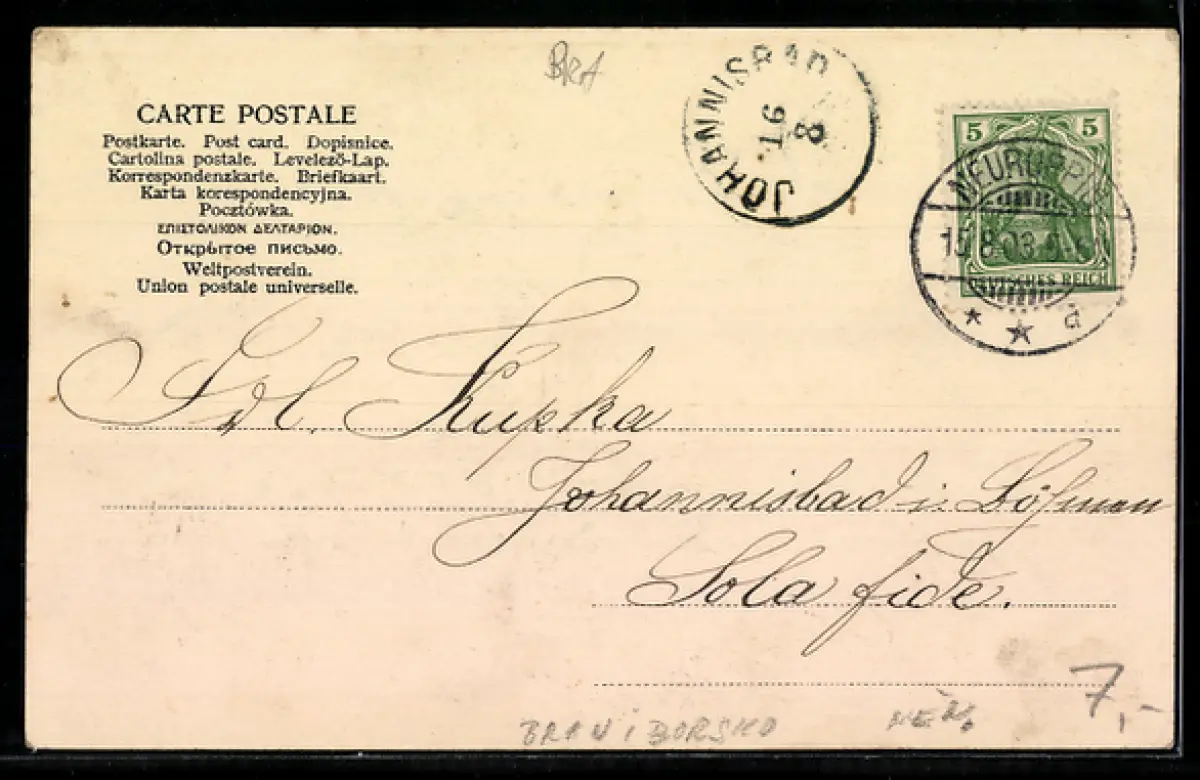 BRA
JOHANNISBAD
16 8
CARTE POSTALE
Postkarte. Post card. Dopisnice.
Cartolina postale. Levelező-Lap.
Korrespondenzkarte. Briefkaart.
Karta korespondencyjna.
Pocztówka.
ΕΠΙΣΤΟΛΙΚΟΝ ΔΕΛΤΑΡΙΟΝ.
Открытое письмо.
Weltpostverein.
Union postale universelle.
5 5
DEUTSCHES REICH
NEURUPPIN
15.8.03
* * a
Frl. Kupka
Johannisbad i. Böhmen
Sola fide.
BRANIBORSKO
NĚM.
7,-